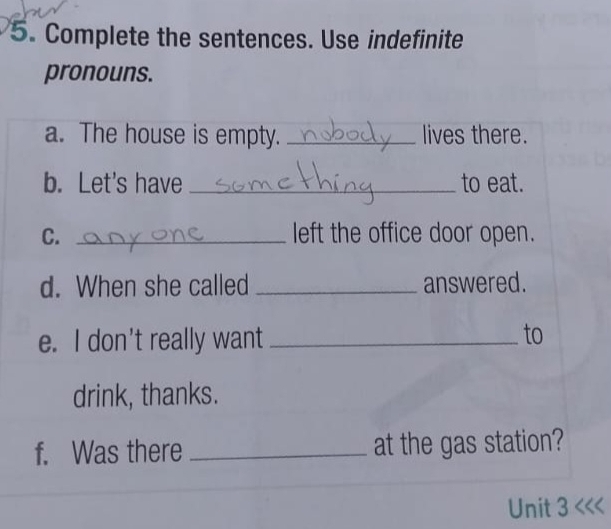 5. Complete the sentences. Use indefinite
pronouns.
a. The house is empty. nobody lives there.
b. Let's have something to eat.
c. anyone left the office door open.
d. When she called ____________ answered.
e. I don't really want ____________ to
drink, thanks.
f. Was there ____________ at the gas station?
Unit 3 <<<